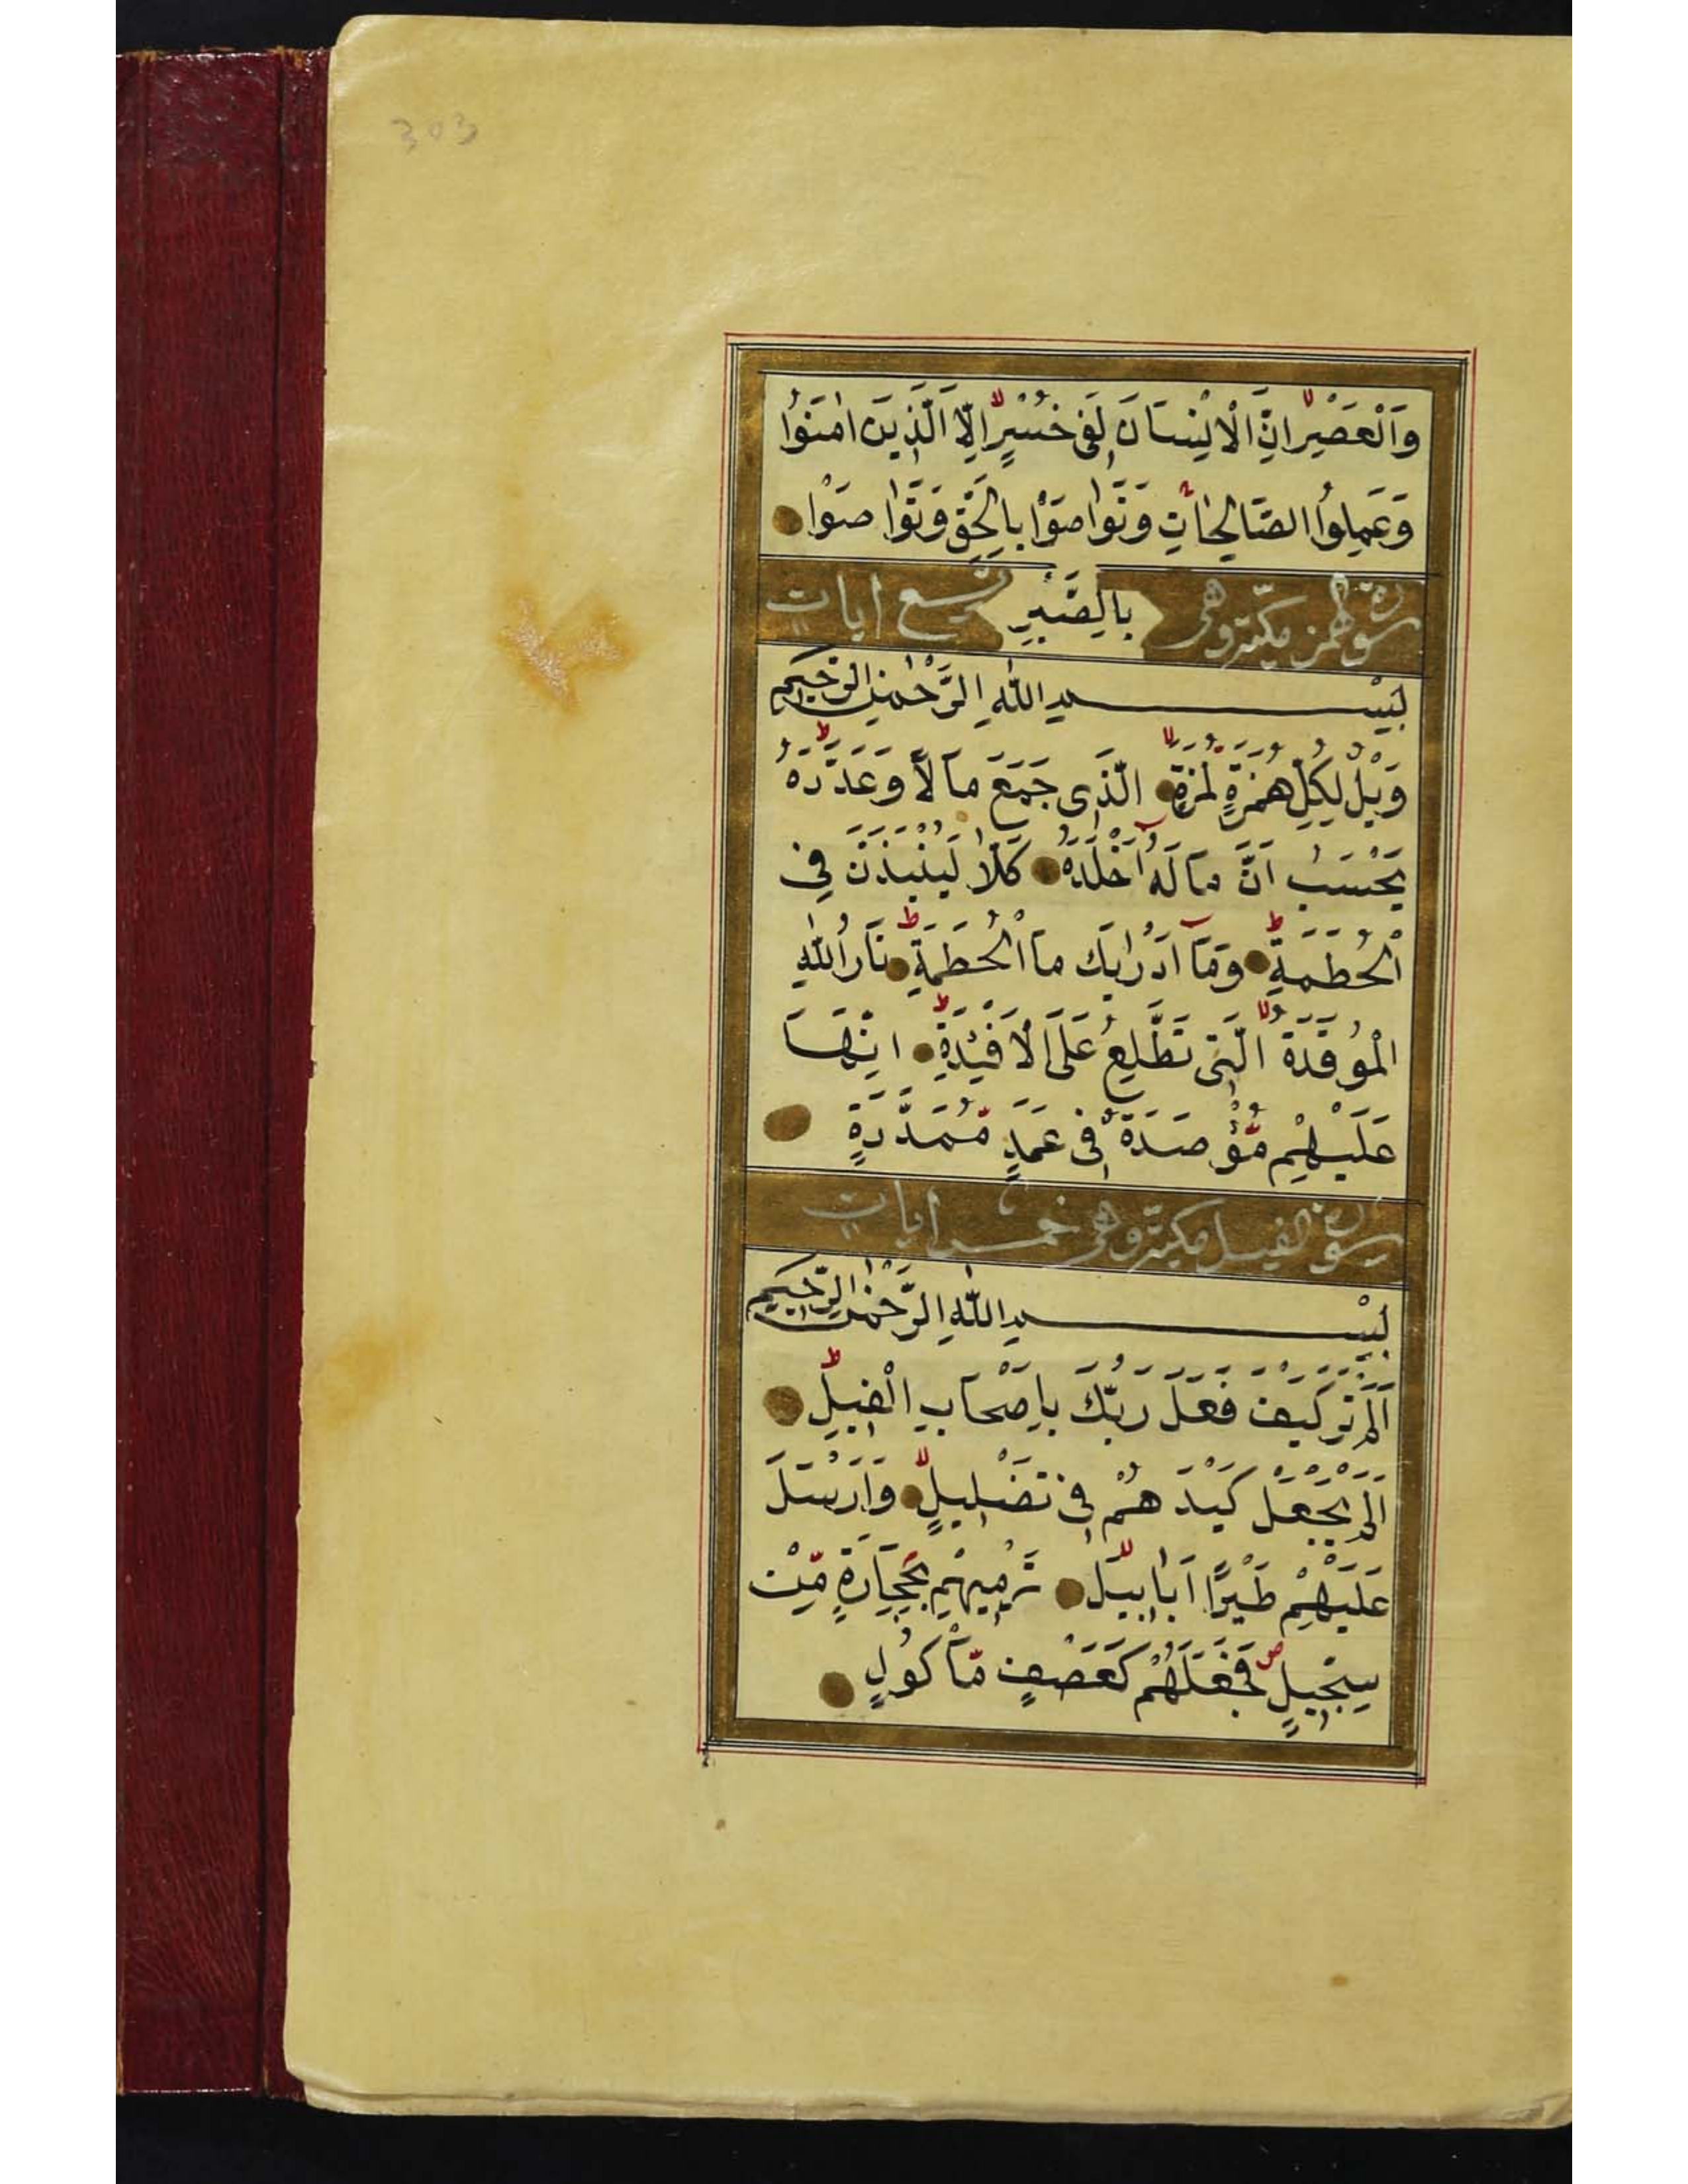 303
وَالْعَصْرِ اِنَّ الْاِنْسَانَ لَفِى خُسْرٍ اِلَّا الَّذِينَ اٰمَنُوا
وَعَمِلُوا الصَّالِحَاتِ وَتَوَاصَوْا بِالْحَقِّ وَتَوَاصَوْا
سورة الهمز مكية وهى بِالصَّبْرِ تسع ايات
بِسْمِ اللّٰهِ الرَّحْمٰنِ الرَّحِيمِ
وَيْلٌ لِكُلِّ هُمَزَةٍ لُمَزَةٍ الَّذِى جَمَعَ مَالًا وَعَدَّدَهُ
يَحْسَبُ اَنَّ مَالَهُ اَخْلَدَهُ كَلَّا لَيُنْبَذَنَّ فِى
الْحُطَمَةِ وَمَا اَدْرٰيكَ مَا الْحُطَمَةُ نَارُ اللّٰهِ
الْمُوقَدَةُ الَّتِى تَطَّلِعُ عَلَى الْاَفْئِدَةِ اِنَّهَا
عَلَيْهِمْ مُؤْصَدَةٌ فِى عَمَدٍ مُمَدَّدَةٍ
سورة الفيل مكية وهى خمس ايات
بِسْمِ اللّٰهِ الرَّحْمٰنِ الرَّحِيمِ
اَلَمْ تَرَ كَيْفَ فَعَلَ رَبُّكَ بِاَصْحَابِ الْفِيلِ
اَلَمْ يَجْعَلْ كَيْدَهُمْ فِى تَضْلِيلٍ وَاَرْسَلَ
عَلَيْهِمْ طَيْرًا اَبَابِيلَ تَرْمِيهِمْ بِحِجَارَةٍ مِّنْ
سِجِّيلٍ فَجَعَلَهُمْ كَعَصْفٍ مَّاْكُولٍ